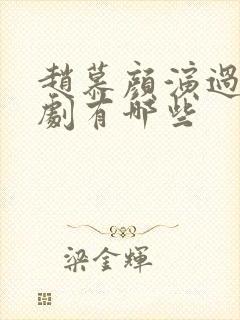 趙慕顏演過
劇有哪些
梁金輝